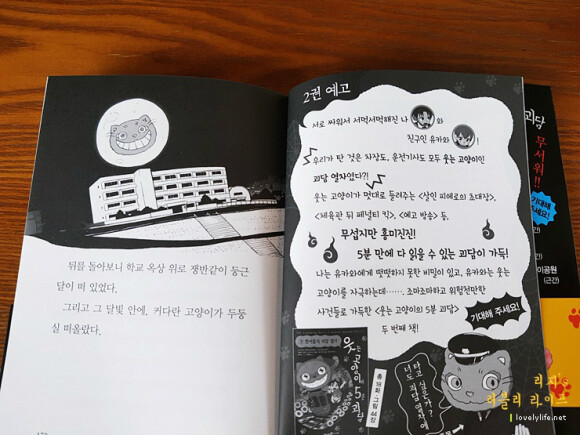 뒤를 돌아보니 학교 옥상 위로 쟁반같이 둥근
달이 떠 있었다.
그리고 그 달빛 안에, 커다란 고양이가 두둥
실 떠올랐다.
2권 예고
서로 싸워서 서먹서먹해진 나 와
친구인 유카와 !
우리가 탄 것은 차장도, 운전기사도 모두 웃는 고양이인
괴담 열차였다?!
웃는 고양이가 멋대로 들려주는 <살인 피에로의 초대장>,
<체육관 뒤 페널티 킥>, <예고 방송> 등,
무섭지만 흥미진진!
5분 만에 다 읽을 수 있는 괴담이 가득!
나는 유카와에게 떳떳하지 못한 비밀이 있고, 유카와는 웃는
고양이를 자극하는데……. 조마조마하고 위험천만한
사건들로 가득한 <웃는 고양이의 5분 괴담>
두 번째 책!
기대해 주세요!
웃는 고양이의 5분 괴담
타고 싶은가?
너도 괴담 열차에
괴담
무서워!!
기대해
주세요!
이공원
(근간)
리지's
러블리 라이프
lovelylife.net